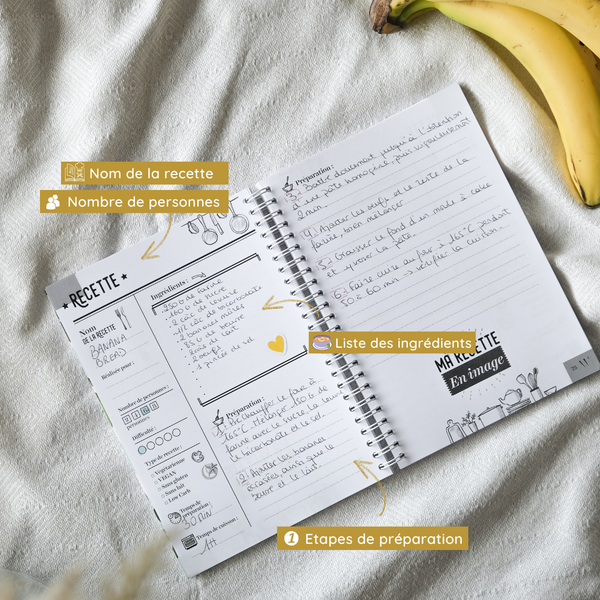 Nom de la recette
Nombre de personnes
★ RECETTE ★
Nom
DE LA RECETTE
BANANA
BREAD
Réalisée pour :
Nombre de personnes :
personnes
Difficulté :
Type de recette :
Végétarienne
VEGAN
Sans gluten
Sans lait
Low Carb
Temps de
préparation :
30 MIN
Temps de cuisson :
1H
Ingrédients :
250 g de farine
160 g de sucre
bananes mûres
2 oeufs
1 pincée de sel
Liste des ingrédients
Préparation :
1) Préchauffer le four à
165°C. Mélanger 160 g de
farine avec le sucre, la levure
le bicarbonate et le sel.
2) Ajouter les bananes
écrasées ainsi que le
beurre et le lait.
Préparation :
3) Battre doucement jusqu'à l'obtention
d'une pâte homogène, puis vigoureusement
2 min
4) Ajouter les oeufs et le reste de la
farine, bien mélanger
5) Graisser le fond d'un moule à cake
et y verser la pâte.
6) Faire cuire au four à 165°C pendant
50 à 60 min → vérifier la cuisson
MA RECETTE
En image
1 Etapes de préparation